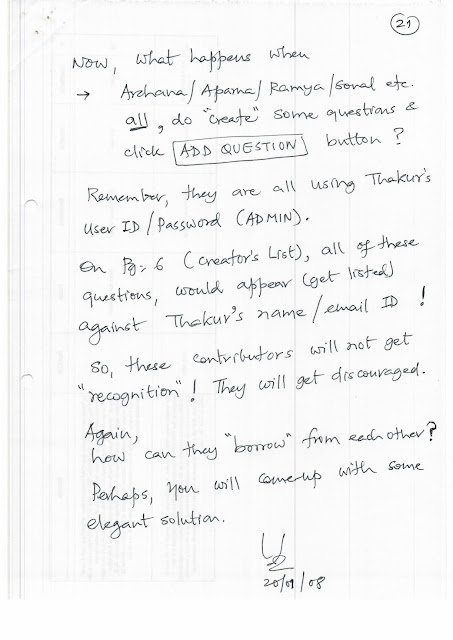 21
Now, what happens when
→ Archana/Aparna/Ramya/Sonal etc.
all, do "create" some questions &
click ADD QUESTION button?
Remember, they are all using Thakur's
User ID/Password (ADMIN).
On Pg: 6 (Creator's List), all of these
questions, would appear (get listed)
against Thakur's name/email ID!
So, these contributors will not get
"recognition"! They will get discouraged.
Again,
how can they "borrow" from each other?
Perhaps, you will come-up with some
elegant solution.
20/09/08